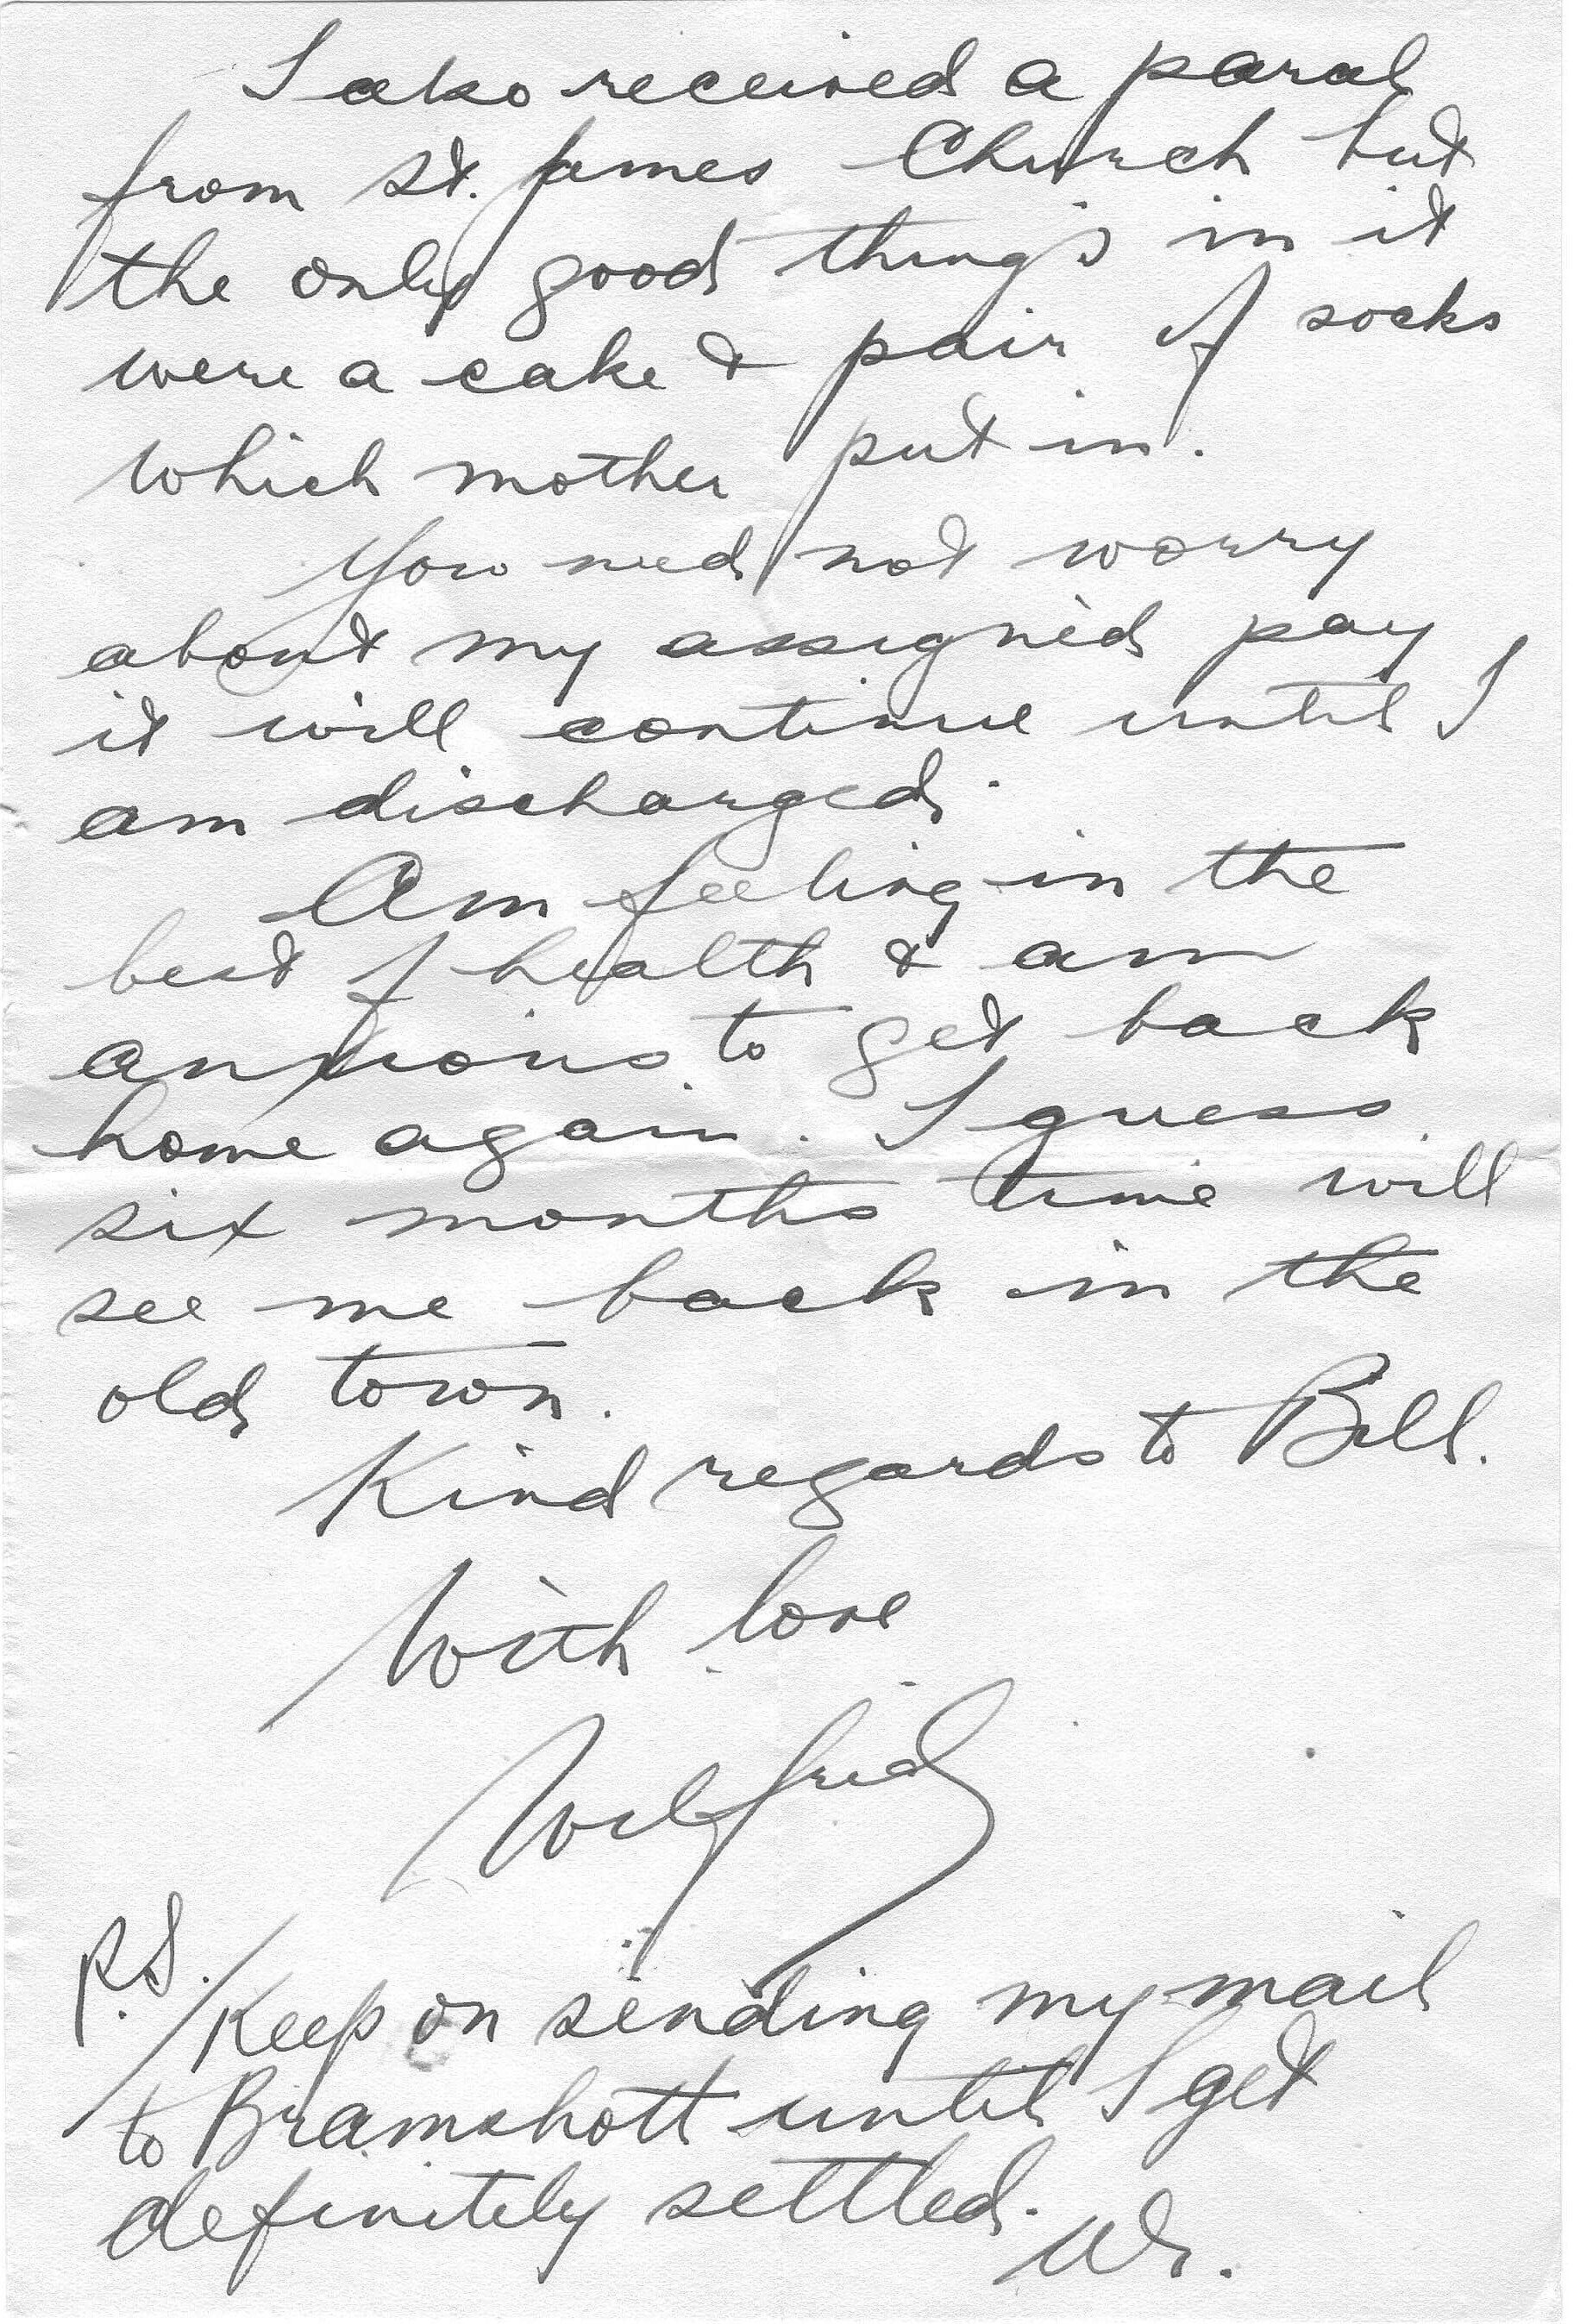 I also received a parcel
from St. James Church but
the only good things in it
were a cake & pair of socks
which mother put in.
You need not worry
about my assigned pay
it will continue until I
am discharged.
Am feeling in the
best of health & am
anxious to get back
home again. I guess
six months time will
see me back in the
old town.
Kind regards to Bill.
With love
Wilfrid
P.S. / Keep on sending my mail
to Bramshott until I get
definitely settled.
W.